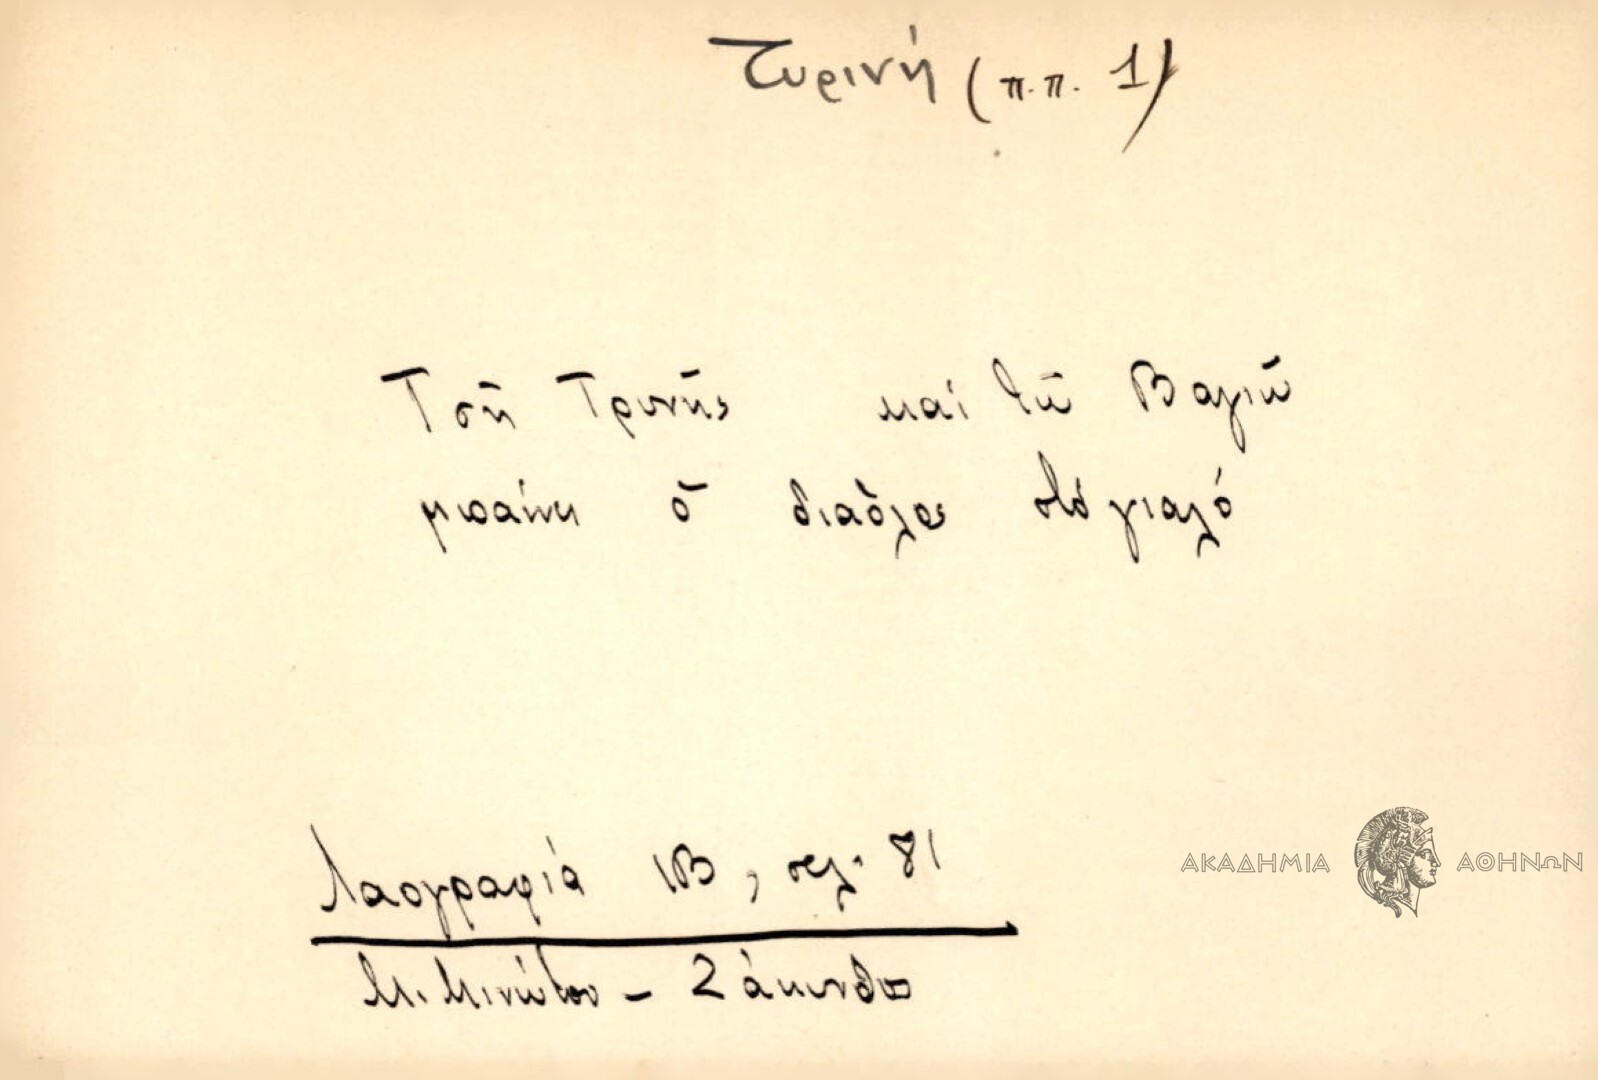 Τυρινή (π.π. 1)
Τσῆ Τρυνῆς καί τῶ Βαγιῶ
μπαίνει ὁ διάολος στό γιαλό
Λαογραφία ΙΒ, σελ. 81
Μ. Μινώτου - Ζάκυνθο
ΑΚΑΔΗΜΙΑ ΑΘΗΝΩΝ